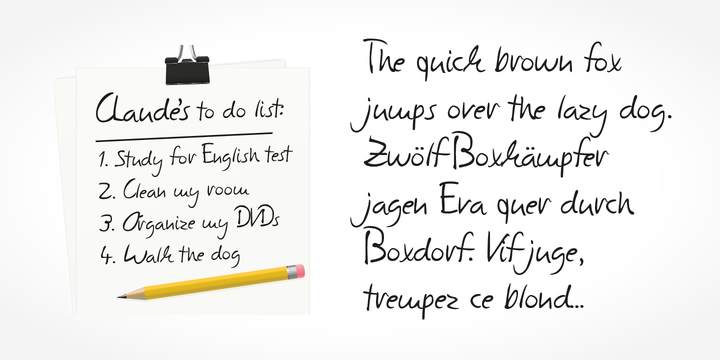 Claude's to do list:
1. Study for English test
2. Clean my room
3. Organize my DVDs
4. Walk the dog
The quick brown fox
jumps over the lazy dog.
Zwölf Boxkämpfer
jagen Eva quer durch
Boxdorf. Vif juge,
trempez ce blond...